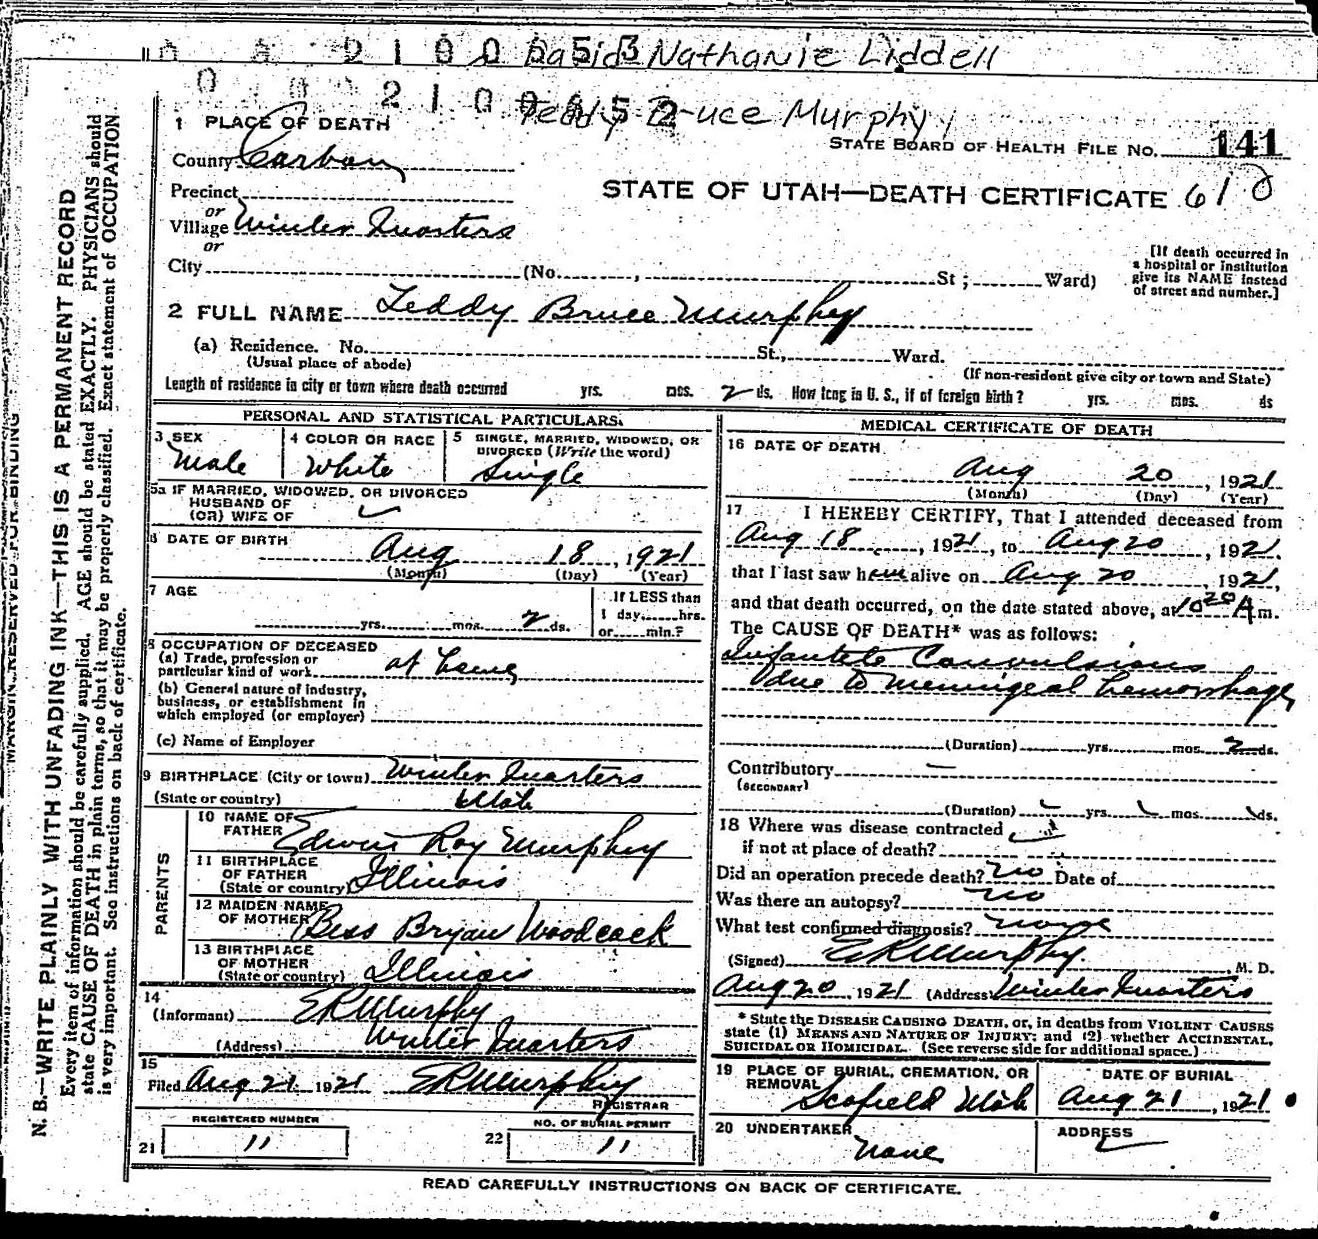 0 2 1 0 0 6 5 3 David Nathanie Liddell
0 2 1 0 0 6 5 2 Teddy Bruce Murphy
1 PLACE OF DEATH
STATE BOARD OF HEALTH FILE NO. 141
County Carbon
STATE OF UTAH—DEATH CERTIFICATE 610
Precinct
or
Village Winter Quarters
or
City (No. , St ; Ward)
[If death occurred in
a hospital or institution
give its NAME instead
of street and number.]
2 FULL NAME Teddy Bruce Murphy
(a) Residence. No. St., Ward.
(Usual place of abode)
(If non-resident give city or town and State)
Length of residence in city or town where death occurred yrs. mos. 2 ds. How long in U. S., if of foreign birth? yrs. mos. ds
PERSONAL AND STATISTICAL PARTICULARS.
3 SEX Male
4 COLOR OR RACE White
5 SINGLE, MARRIED, WIDOWED, OR
DIVORCED (Write the word)
Single
5a IF MARRIED, WIDOWED, OR DIVORCED
HUSBAND OF
(OR) WIFE OF
6 DATE OF BIRTH
Aug 18, 1921
(Month) (Day) (Year)
7 AGE
yrs. mos. 2 ds.
If LESS than
1 day, hrs.
or min.?
8 OCCUPATION OF DECEASED
(a) Trade, profession or
particular kind of work at home
(b) General nature of industry,
business, or establishment in
which employed (or employer)
(c) Name of Employer
9 BIRTHPLACE (City or town) Winter Quarters
(State or country) Utah
PARENTS
10 NAME OF
FATHER Edwin Roy Murphy
11 BIRTHPLACE
OF FATHER
(State or country) Illinois
12 MAIDEN NAME
OF MOTHER Bess Bryan Woodcock
13 BIRTHPLACE
OF MOTHER
(State or country) Illinois
14
(Informant) E R Murphy
(Address) Winter Quarters
15
Filed Aug 21 1921 E R Murphy
REGISTRAR
REGISTERED NUMBER
21 11
NO. OF BURIAL PERMIT
22 11
MEDICAL CERTIFICATE OF DEATH
16 DATE OF DEATH
Aug 20, 1921
(Month) (Day) (Year)
17 I HEREBY CERTIFY, That I attended deceased from
Aug 18, 1921, to Aug 20, 1921.
that I last saw him alive on Aug 20, 1921,
and that death occurred, on the date stated above, at 10 20 A m.
The CAUSE OF DEATH* was as follows:
Infantile Convulsions
due to meningeal hemorrhage
(Duration) yrs. mos. 2 ds.
Contributory —
(SECONDARY)
(Duration) yrs. mos. ds.
18 Where was disease contracted
if not at place of death?
Did an operation precede death? no Date of
Was there an autopsy? no
What test confirmed diagnosis? none
(Signed) E R Murphy, M. D.
Aug 20, 1921 (Address) Winter Quarters
* State the DISEASE CAUSING DEATH, or, in deaths from VIOLENT CAUSES
state (1) MEANS AND NATURE OF INJURY; and (2) whether ACCIDENTAL,
SUICIDAL OR HOMICIDAL. (See reverse side for additional space.)
19 PLACE OF BURIAL, CREMATION, OR
REMOVAL
Scofield Utah
DATE OF BURIAL
Aug 21, 1921
20 UNDERTAKER
None
ADDRESS
READ CAREFULLY INSTRUCTIONS ON BACK OF CERTIFICATE.
MARGIN RESERVED FOR BINDING
N. B.—WRITE PLAINLY WITH UNFADING INK—THIS IS A PERMANENT RECORD
Every item of information should be carefully supplied. AGE should be stated EXACTLY. PHYSICIANS should
state CAUSE OF DEATH in plain terms, so that it may be properly classified. Exact statement of OCCUPATION
is very important. See instructions on back of certificate.